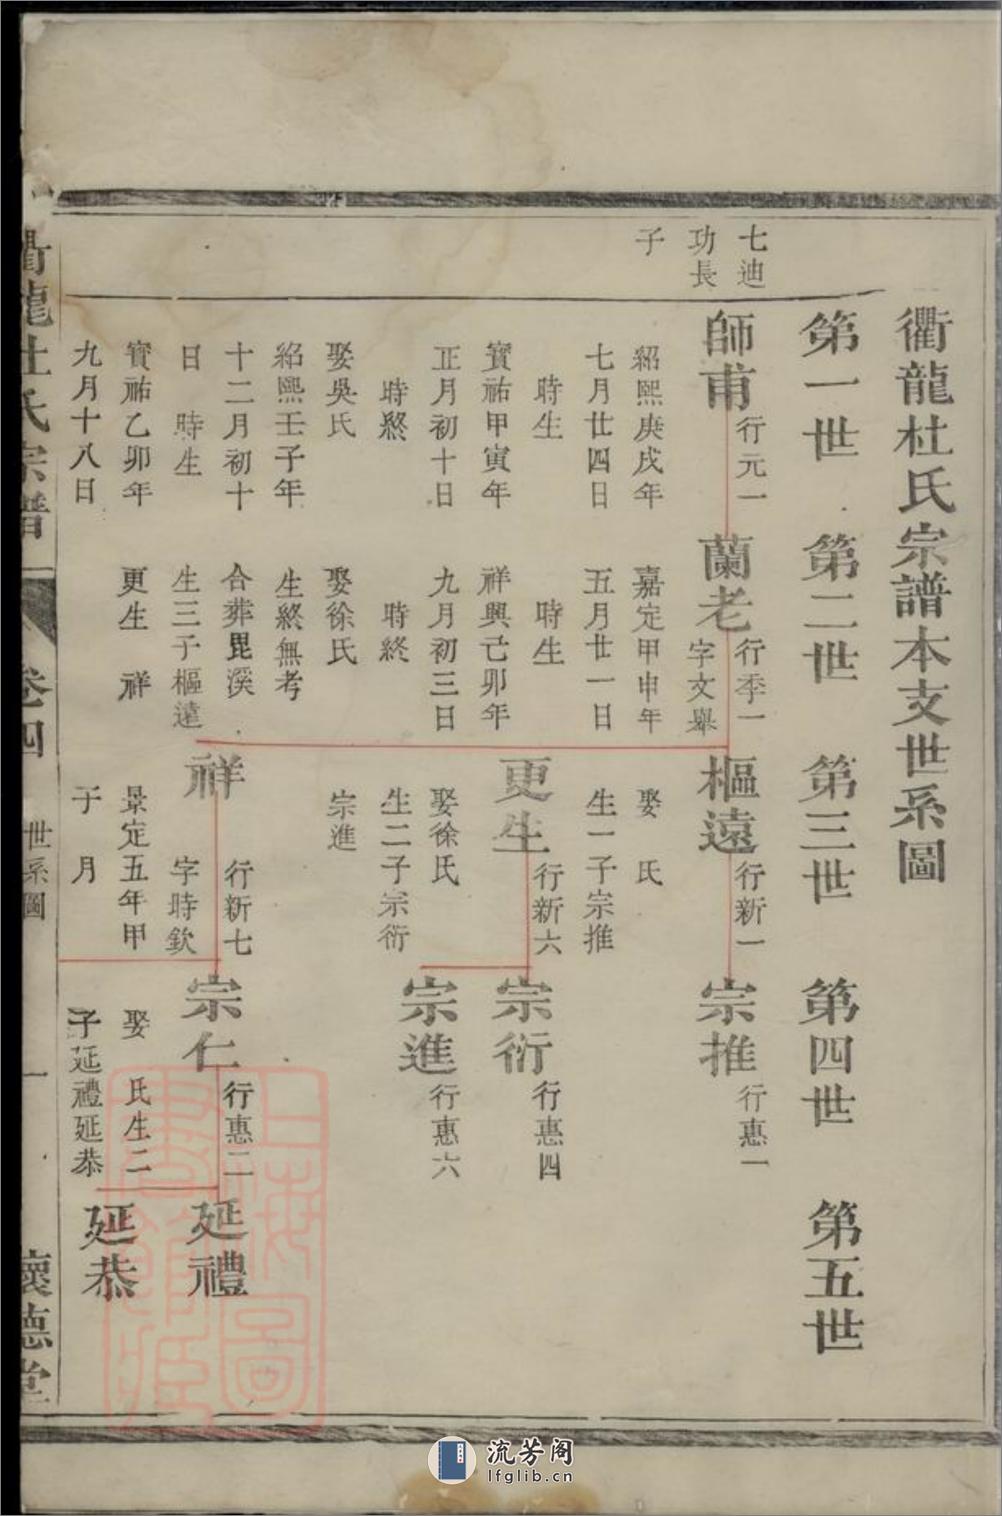 衢龍杜氏宗譜本支世系圖
第一世
第二世
第三世
第四世
第五世
七迪
功長
子
師甫
行元一
紹熙庚戌年
七月廿四日
時生
寶祐甲寅年
正月初十日
時終
娶吳氏
紹熙壬子年
十二月初十
日 時生
寶祐乙卯年
九月十八日
蘭老
行季一
字文舉
嘉定甲申年
五月廿一日
時生
祥興己卯年
九月初三日
時終
娶徐氏
生終無考
合葬毘溪
生三子樞遠
更生 祥
樞遠
行新一
娶 氏
生一子宗推
更生
行新六
娶徐氏
生二子宗衍
宗進
祥
行新七
字時欽
景定五年甲
于 月
宗推
行惠一
宗衍
行惠四
宗進
行惠六
宗仁
行惠二
娶 氏生二
子延禮延恭
延禮
延恭
衢龍杜氏宗譜
卷四
世系圖
一
懷德堂
上海圖
書館藏
流芳阁
lfglib.cn